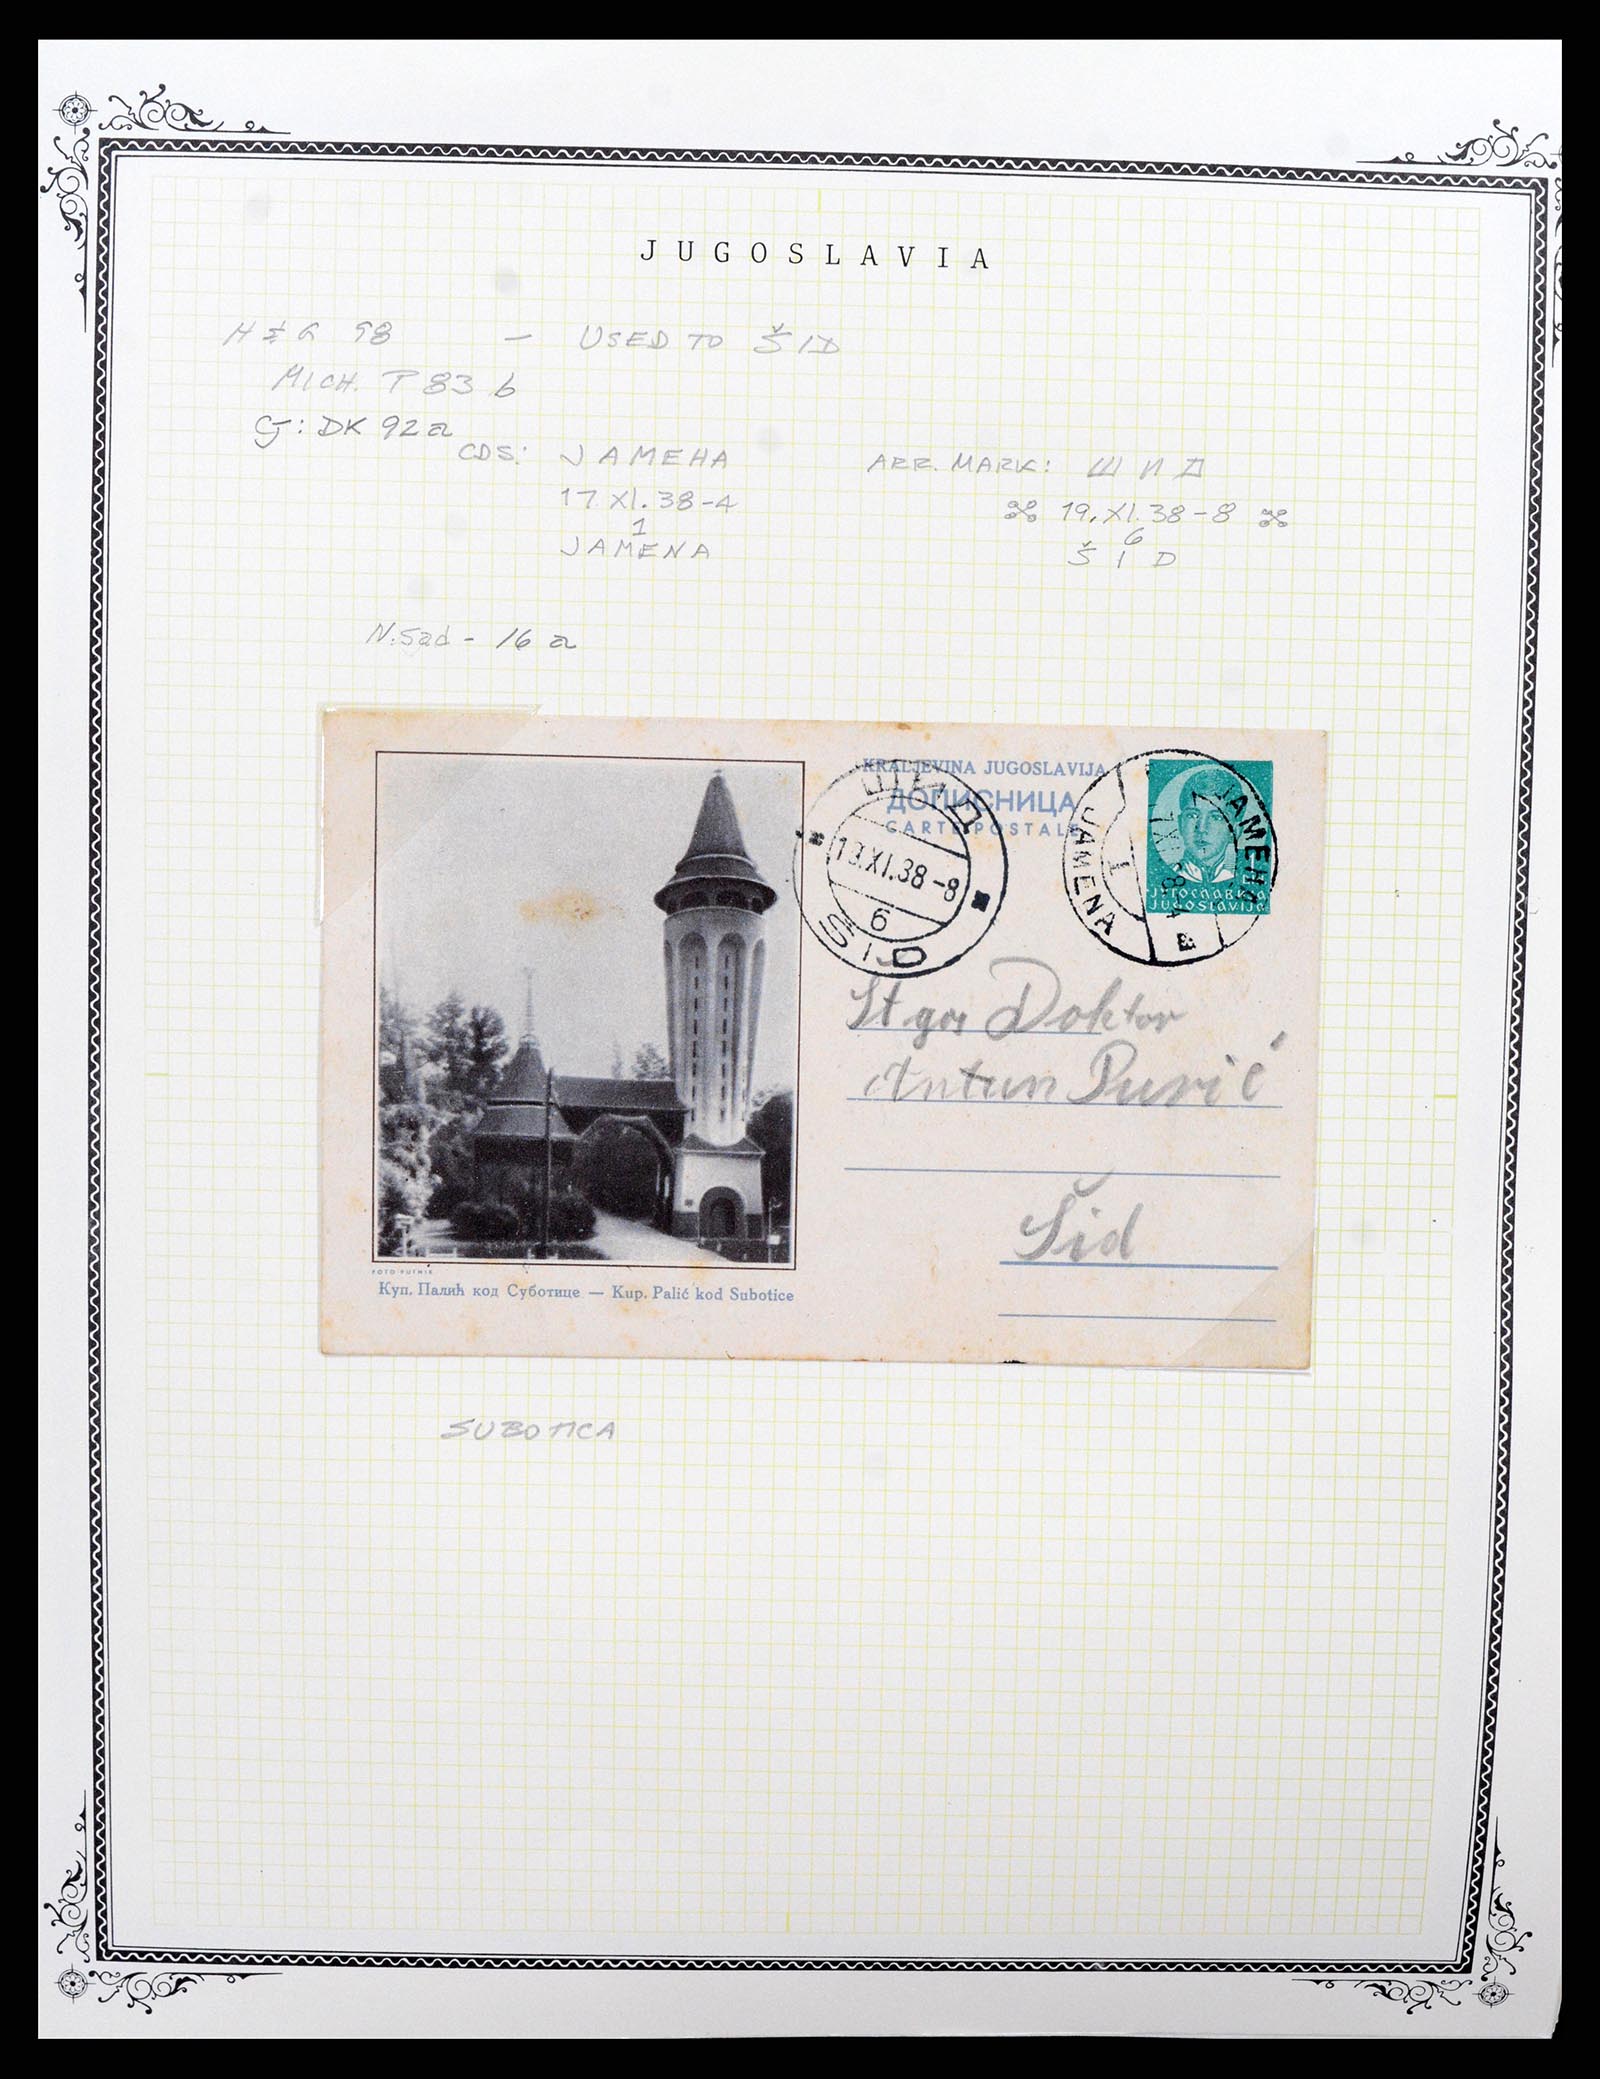 JUGOSLAVIA
H & G 98 — USED TO ŠID
MICH. P 83 b
CJ: DK 92a
CDS: JAMEHA
17.XI.38-4
1
JAMENA
ARR. MARK: ШИД
19.XI.38-8
6
ŠID
N.Sad - 16 a
KRALJEVINA JUGOSLAVIJA
ДОПИСНИЦА
CARTE POSTALE
ШИД
19.XI.38-8
6
ŠID
ЈАМЕНА
17.XI.38-4
1
a
JAMENA
ЈУГОСЛАВИЈА
JUGOSLAVIJA
Doktor
Antun Purić
Šid
FOTO PUTNIK
Куп. Палић код Суботице — Kup. Palić kod Subotice
SUBOTICA